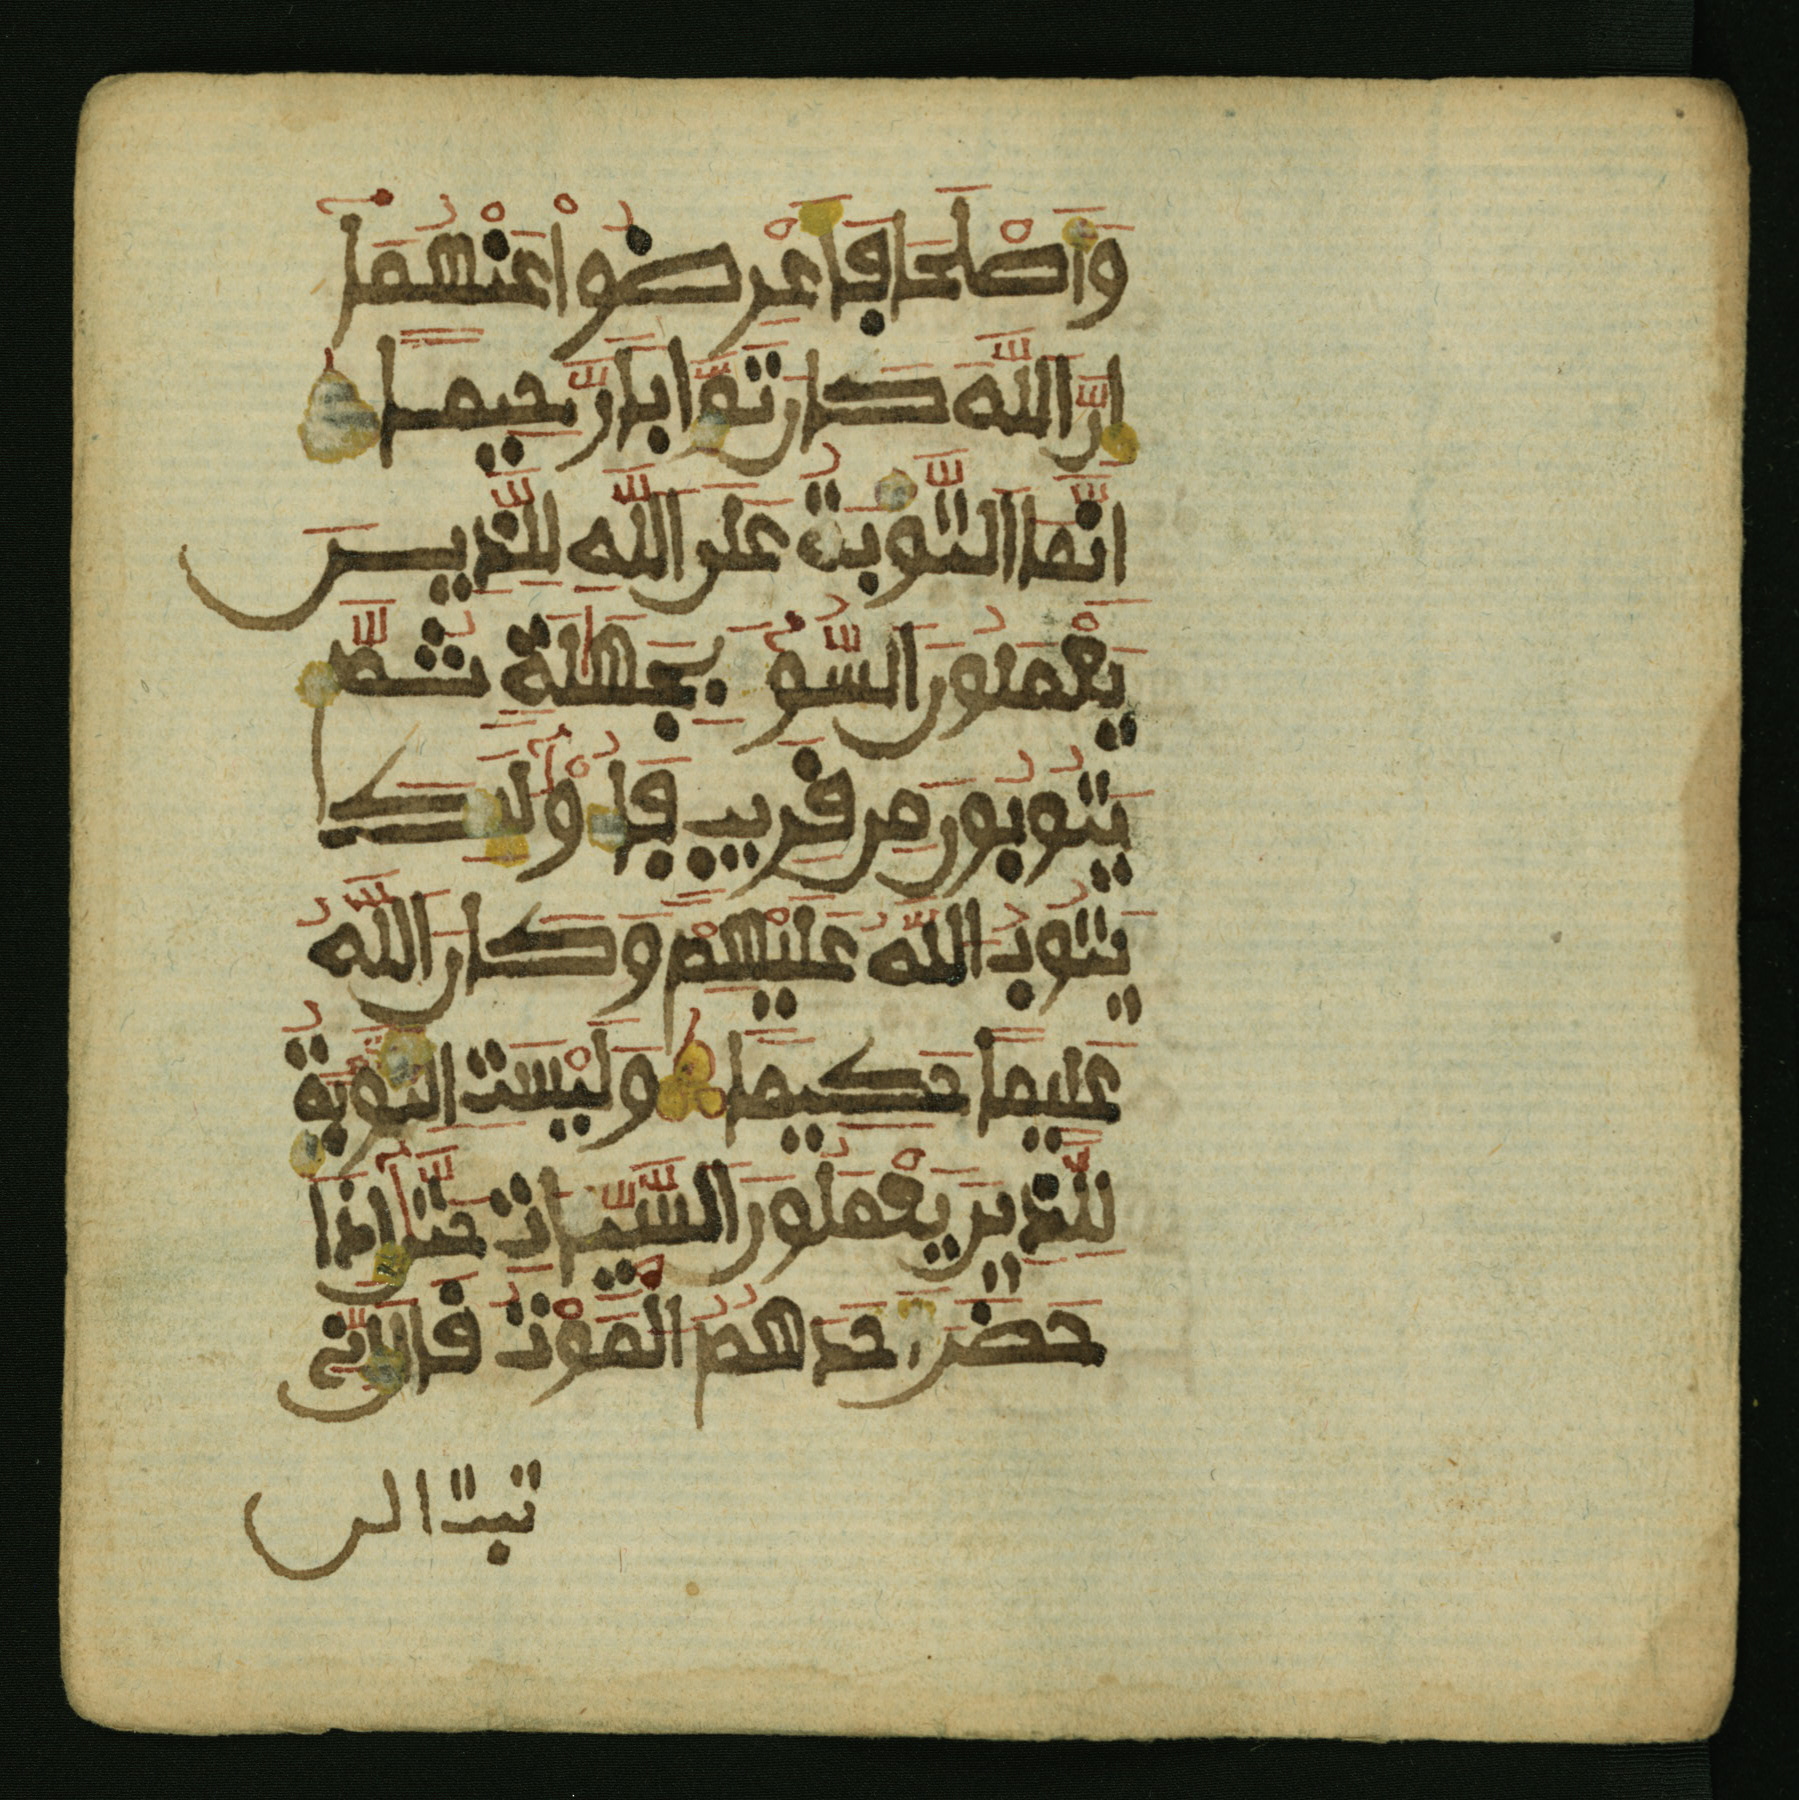 وَأَصْلَحَا فَأَعْرِضُواْ عَنْهُمَا
إِنَّ اللَّهَ كَانَ تَوَّابًا رَّحِيمًا
إِنَّمَا التَّوْبَةُ عَلَى اللَّهِ لِلَّذِينَ
يَعْمَلُونَ السُّوءَ بِجَهَٰلَةٍ ثُمَّ
يَتُوبُونَ مِن قَرِيبٍ فَأُوْلَٰئِكَ
يَتُوبُ اللَّهُ عَلَيْهِمْ وَكَانَ اللَّهُ
عَلِيمًا حَكِيمًا وَلَيْسَتِ التَّوْبَةُ
لِلَّذِينَ يَعْمَلُونَ السَّيِّئَاتِ حَتَّىٰ إِذَا
حَضَرَ أَحَدَهُمُ الْمَوْتُ قَالَ إِنِّي
تبت الن